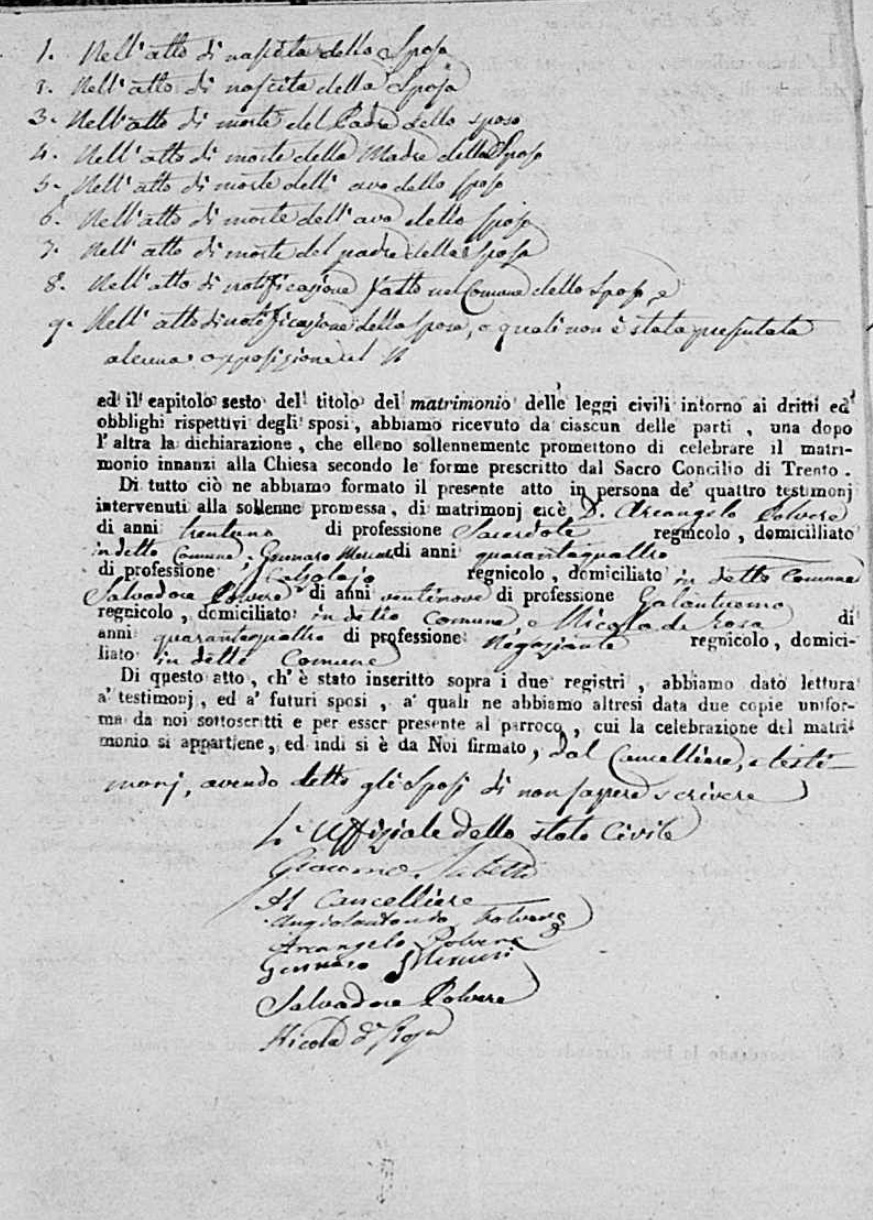 1. Nell'atto di nascita dello Sposo
2. Nell'atto di nascita della Sposa
3. Nell'atto di morte del Padre dello sposo
4. Nell'atto di morte della Madre dello Sposo
5. Nell'atto di morte dell'avo dello sposo
6. Nell'atto di morte dell'ava dello sposo
7. Nell'atto di morte del padre della Sposa
8. Nell'atto di notificazione fatto nel Comune dello sposo, e
9. Nell'atto di notificazione della sposa, a quali non è stata presentata
alcuna opposizione
ed il capitolo sesto del titolo del matrimonio delle leggi civili intorno ai dritti ed
obblighi rispettivi degli sposi, abbiamo ricevuto da ciascun delle parti, una dopo
l'altra la dichiarazione, che elleno sollennemente promettono di celebrare il matri-
monio innanzi alla Chiesa secondo le forme prescritto dal Sacro Concilio di Trento.
Di tutto ciò ne abbiamo formato il presente atto in persona de' quattro testimonj
intervenuti alla sollenne promessa, di matrimonj cicè D. Arcangelo Polvere
di anni trentuno di professione Sacerdote regnicolo, domicilliato
in detto Comune, Gennaro di anni quarantaquattro
di professione Calzolajo regnicolo, domiciliato in detto Comune
Salvadore Polvere di anni ventinove di professione Galantuomo
regnicolo, domiciliato in detto Comune, e Nicola de Rosa di
anni quarantaquattro di professione Negoziante regnicolo, domici-
liato in detto Comune
Di questo atto, ch'è stato inseritto sopra i due registri, abbiamo dato lettura
a' testimonj, ed a' futuri sposi, a' quali ne abbiamo altresì data due copie unifor-
ma da noi sottoscritti e per esser presente al parroco, cui la celebrazione del matri-
monio si appartiene, ed indi si è da Noi firmato, dal Cancelliere, e testi-
monj, avendo detto gli Sposi di non sapere scrivere
L'Uffiziale dello stato Civile
Giacomo
Il Cancelliere
Angiolantonio Polvere
Arcangelo Polvere
Gennaro
Salvadore Polvere
Nicola d'Rosa